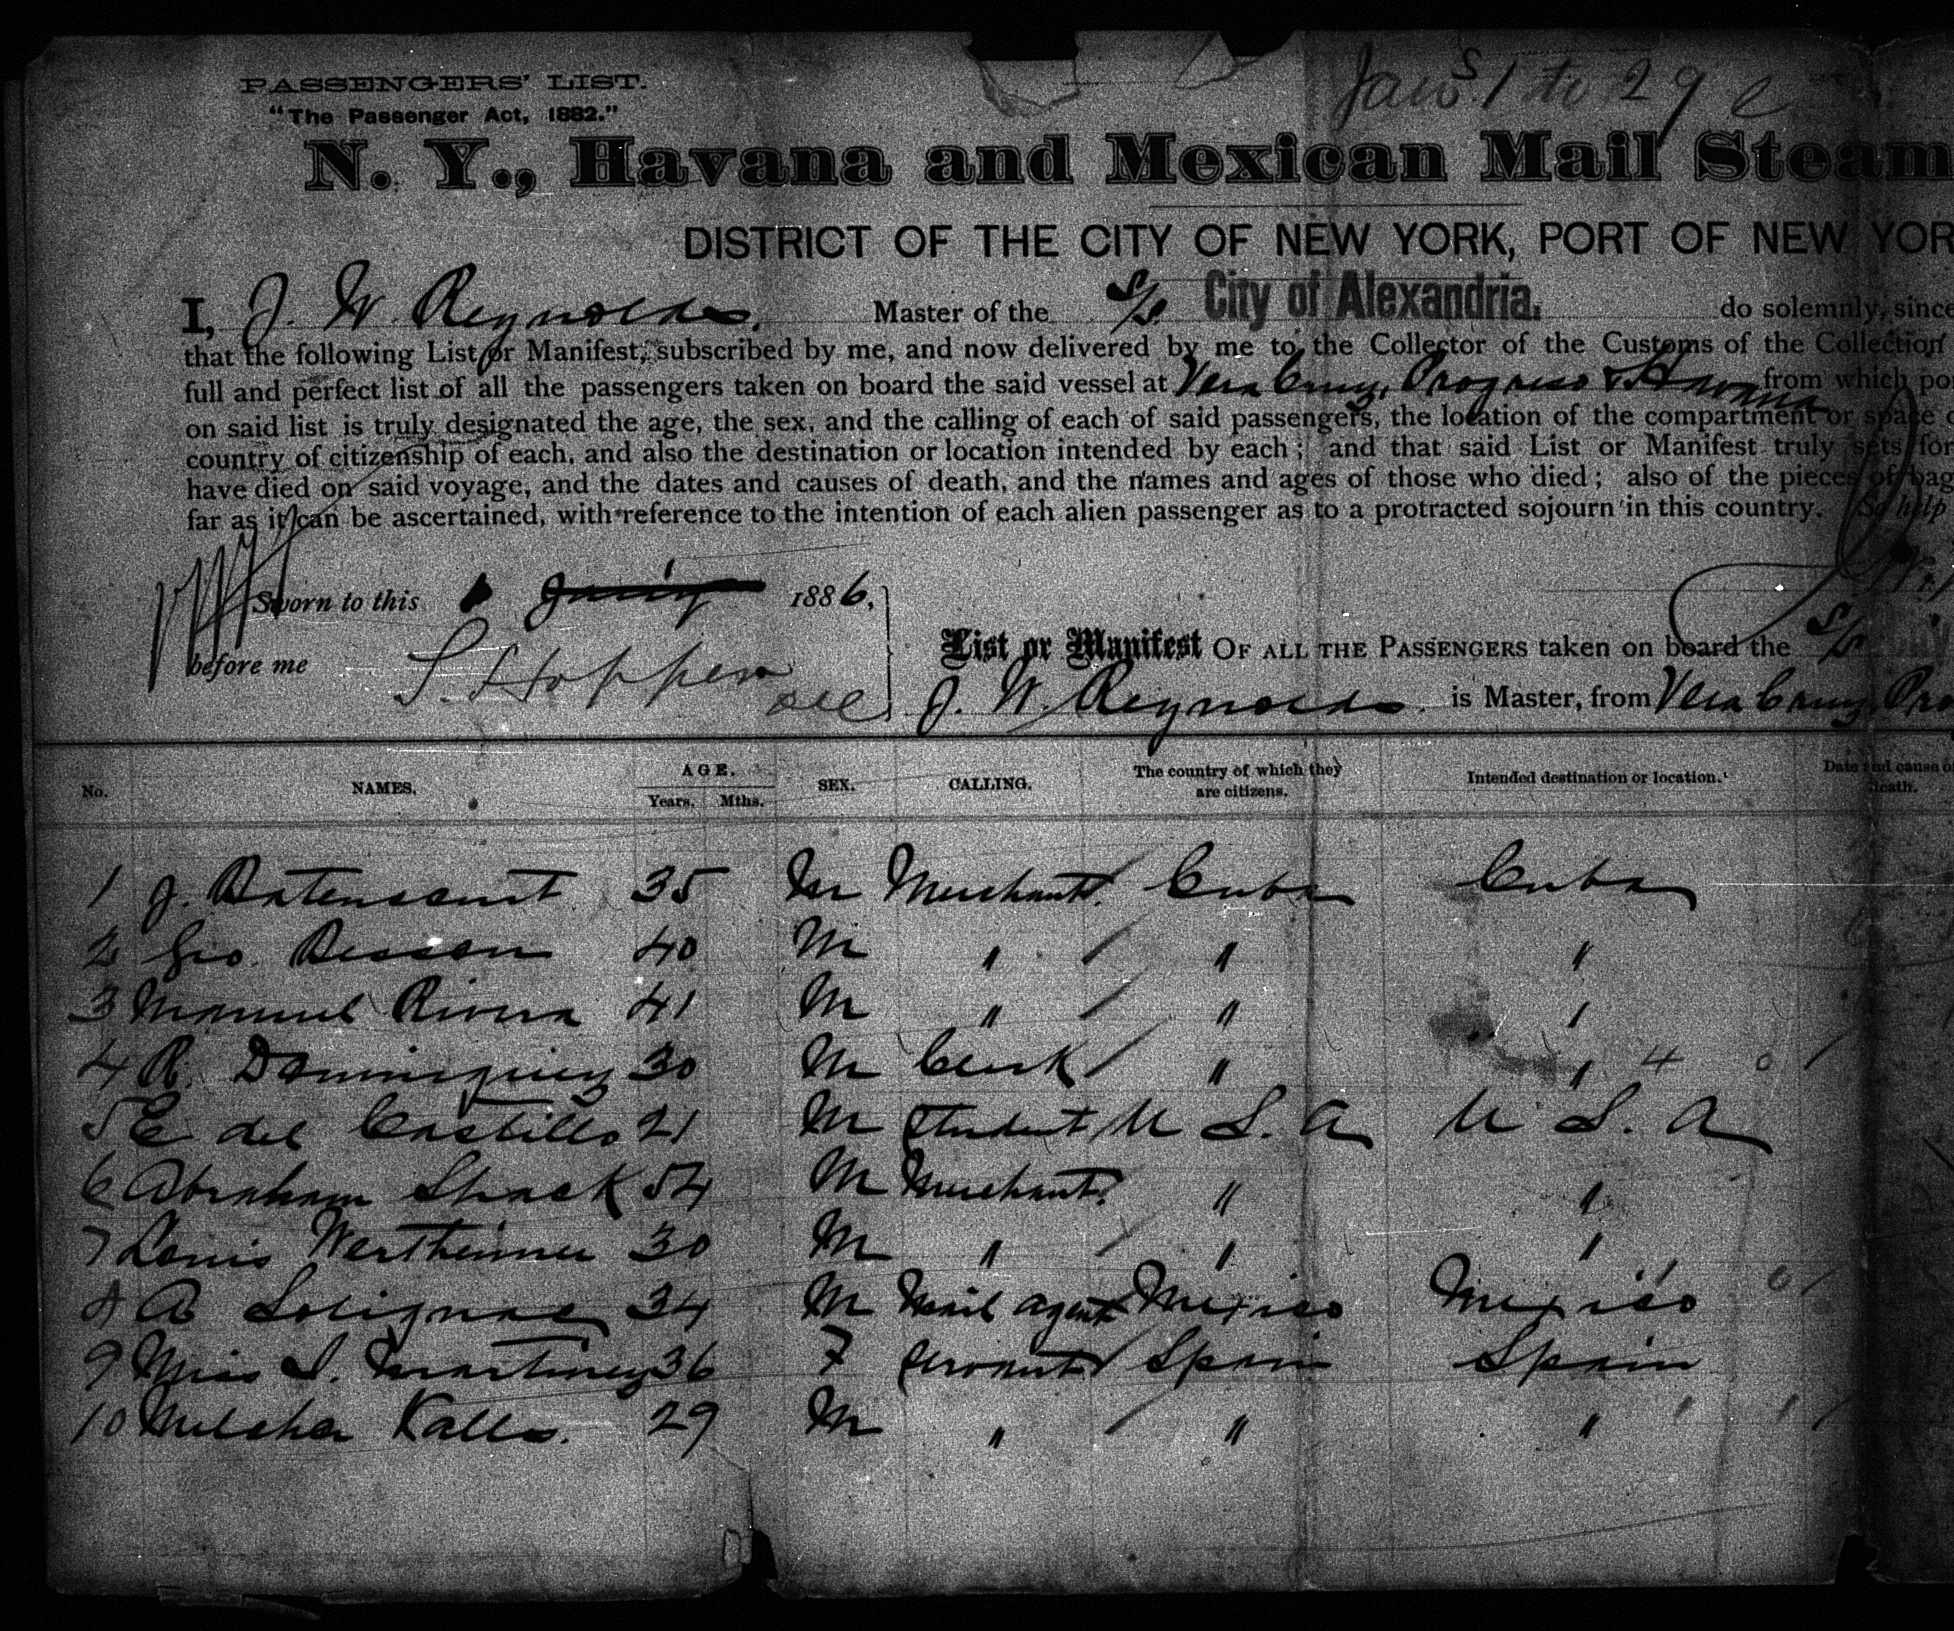 PASSENGERS' LIST.
"The Passenger Act, 1882."
Jan. 1 to 29
N. Y., Havana and Mexican Mail Steam
DISTRICT OF THE CITY OF NEW YORK, PORT OF NEW YOR
I, J. W. Reynolds. Master of the S/S. City of Alexandria. do solemnly, since
that the following List or Manifest, subscribed by me, and now delivered by me to the Collector of the Customs of the Collection
full and perfect list of all the passengers taken on board the said vessel at Vera Cruz, Progreso & Havana from which po
on said list is truly designated the age, the sex, and the calling of each of said passengers, the location of the compartment or space
country of citizenship of each, and also the destination or location intended by each; and that said List or Manifest truly sets for
have died on said voyage, and the dates and causes of death, and the names and ages of those who died; also of the pieces of bag
far as it can be ascertained, with reference to the intention of each alien passenger as to a protracted sojourn in this country. So help
Sworn to this 1886,
before me
List or Manifest OF ALL THE PASSENGERS taken on board the S/S
J. W. Reynolds. is Master, from Vera Cruz, Pro
No. NAMES. AGE. Years. Mths. SEX. CALLING. The country of which they are citizens. Intended destination or location. Date and cause of death.
1 J. 35 M Merchant Cuba Cuba
2 Geo. Besson 40 M " " "
3 Manuel Rivera 41 M " " "
4 R. Dominguez 30 M Clerk " " 4 0
5 E del Castillo 21 M Student U S. A U S. A
6 Abraham Shack 54 M Merchant. " "
7 Louis Wertheimer 30 M " " "
8 A Solignac 34 M Mail agent Mexico Mexico
9 Miss S. Martinez 36 F Servant Spain Spain
10 Melchor Kalls. 29 M " " "